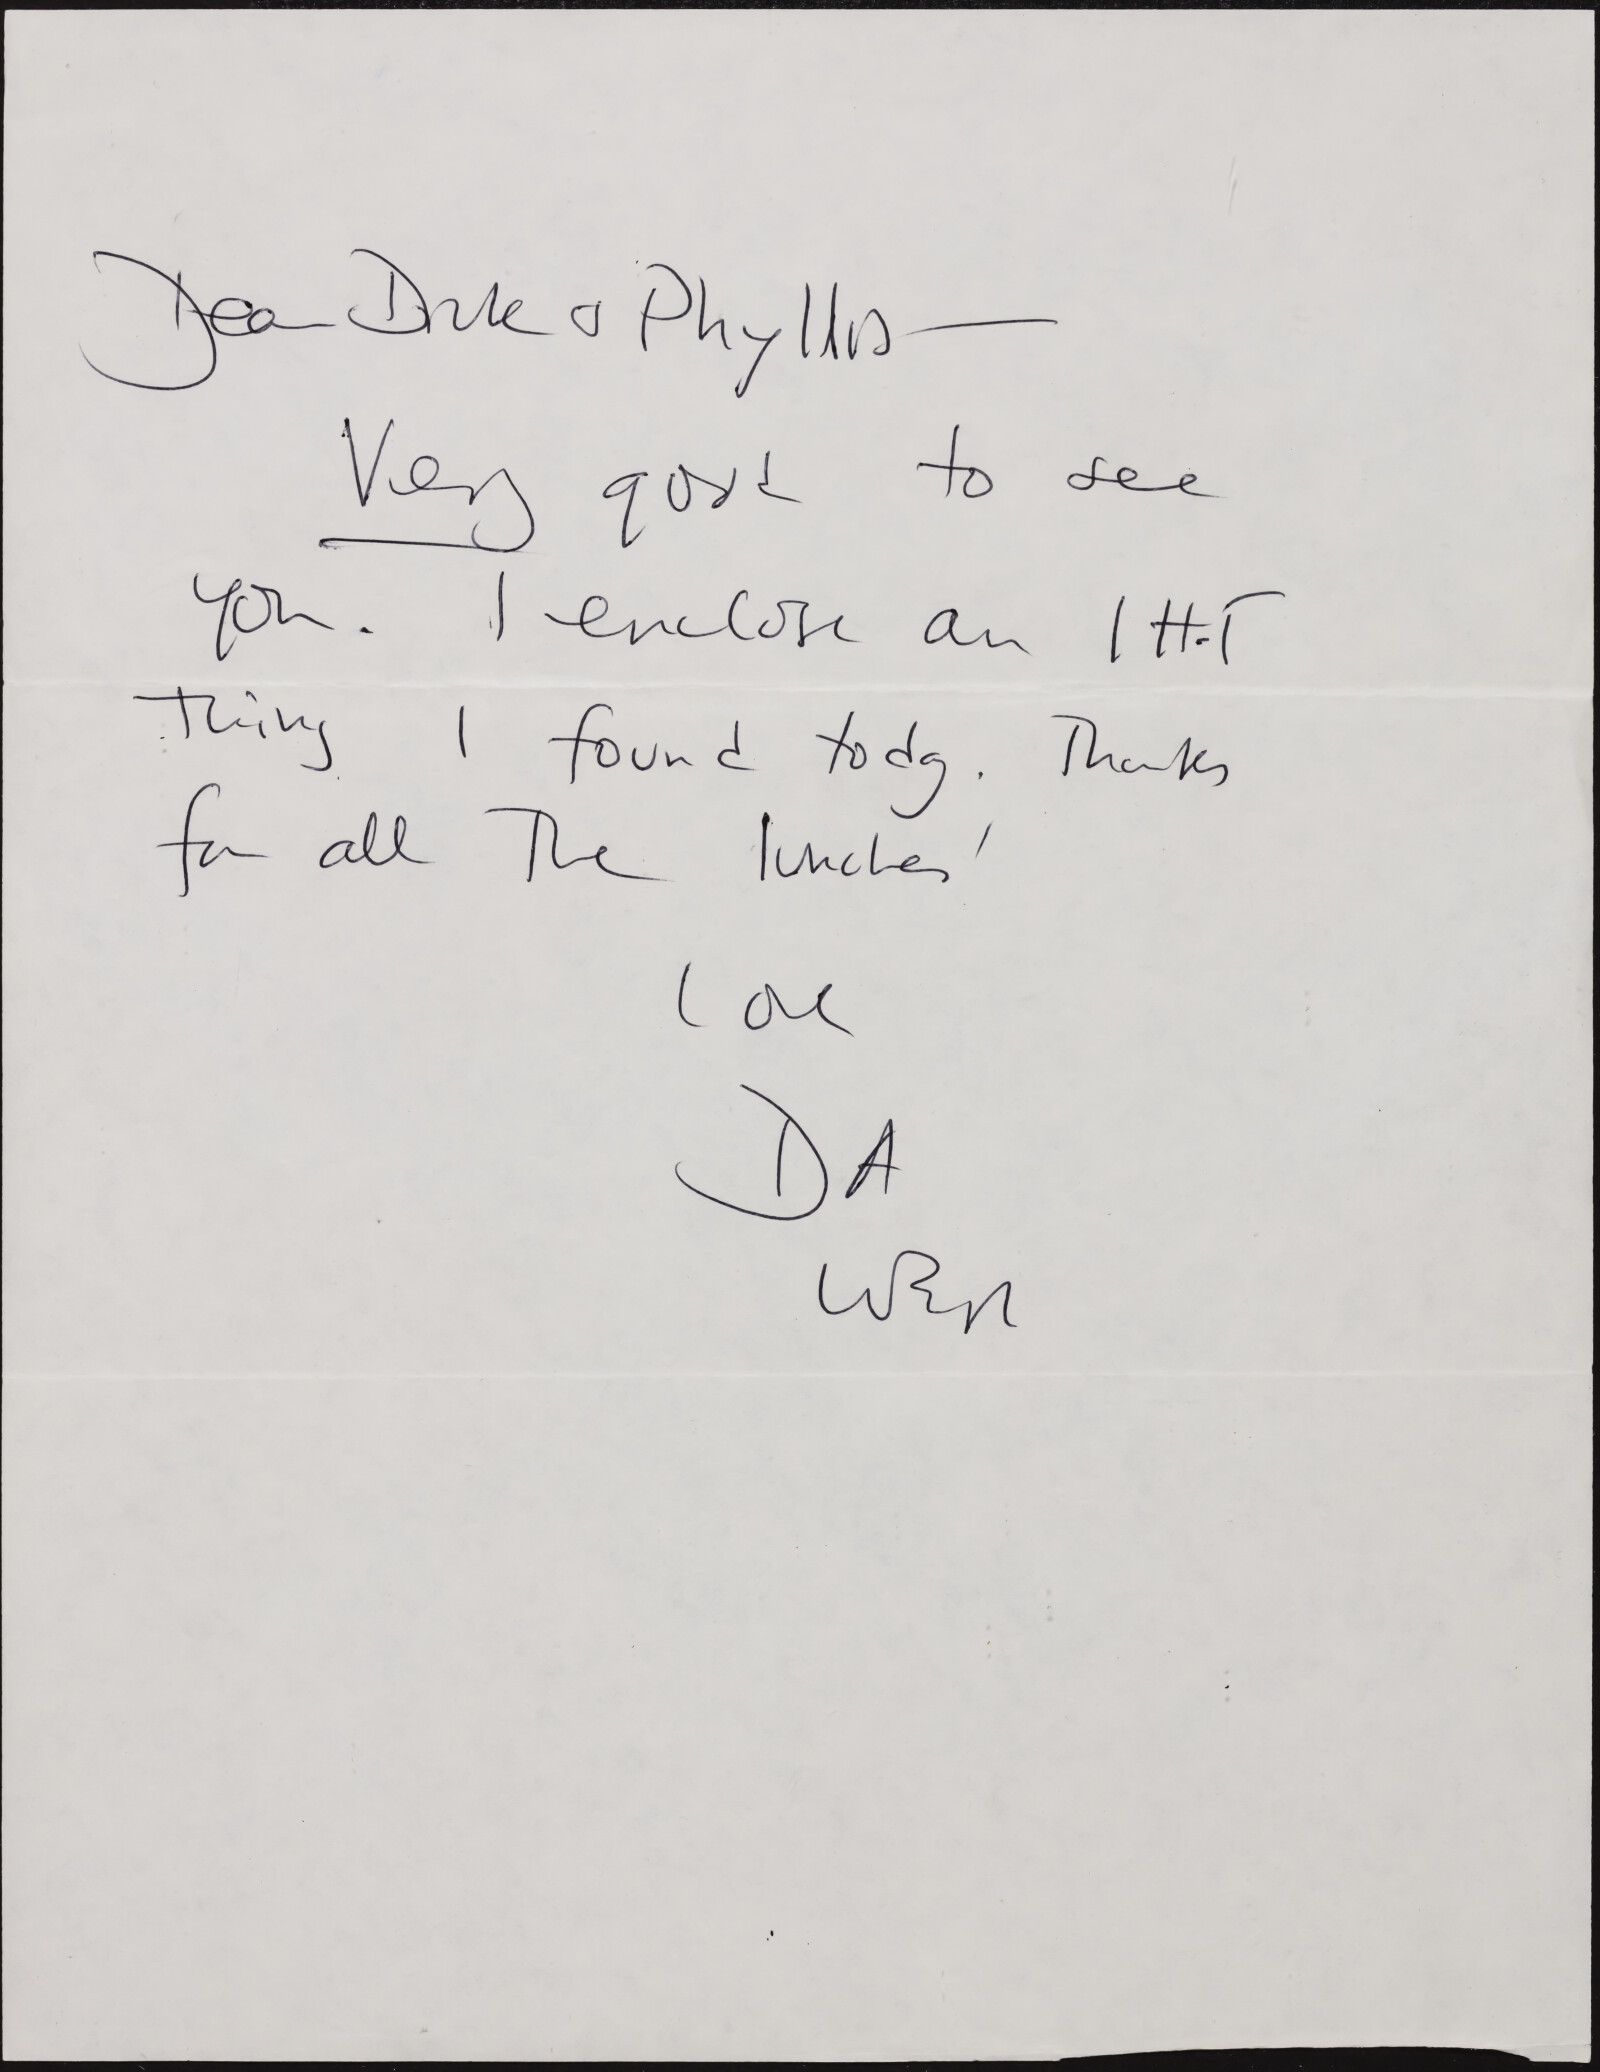 Dear Dick & Phyllis —
Very good to see
you. I enclose an IHT
thing I found today. Thanks
for all the lunches!
Love
DA